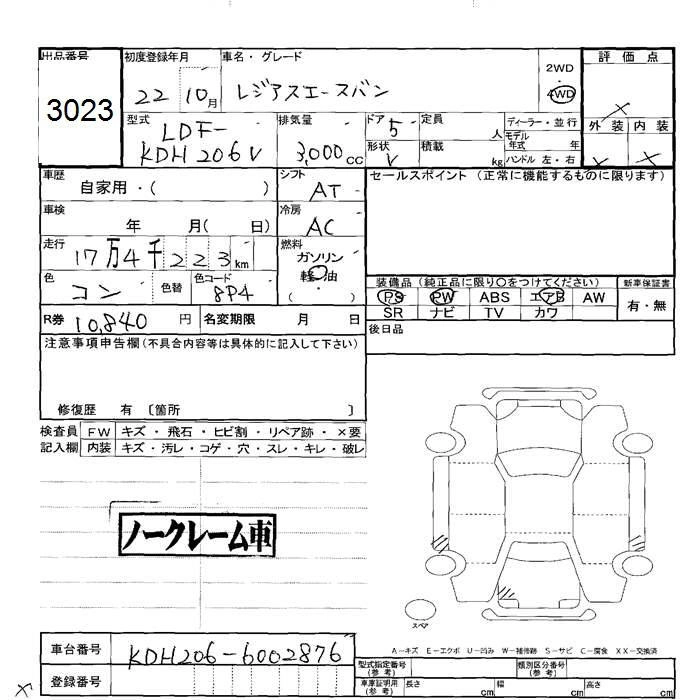 出品番号
3023
初度登録年月
22 10月
車名・グレード
レジアスエースバン
2WD
・
4WD
評価点
外装 内装
型式
LDF-
KDH206V
排気量
3,000 CC
ドア 5
形状 V
定員 人
積載 kg
ディーラー・並行
モデル
年式 年
ハンドル 左・右
車歴
自家用・( )
シフト
AT
セールスポイント (正常に機能するものに限ります)
車検
年 月( 日)
冷房
AC
走行
17万4千223km
燃料
ガソリン
軽油
( )
色
コン
色替
色コード
8P4
装備品 (純正品に限り〇をつけてください)
新車保証書
PS PW ABS エアB AW
SR ナビ TV カワ
有・無
R券 10,840 円
名変期限 月 日
後日品
注意事項申告欄(不具合内容等は具体的に記入して下さい)
修復歴 有 〔箇所 〕
検査員
記入欄
FW キズ・飛石・ヒビ割・リペア跡・×要
内装 キズ・汚レ・コゲ・穴・スレ・キレ・破レ
ノークレーム車
スペア
A-キズ E-エクボ U-凹み W-補修跡 S-サビ C-腐食 XX-交換済
車台番号
KDH206-6002876
登録番号
型式指定番号
(参考)
類別区分番号
(参考)
車庫証明用
(参考)
長さ cm
幅 cm
高さ cm